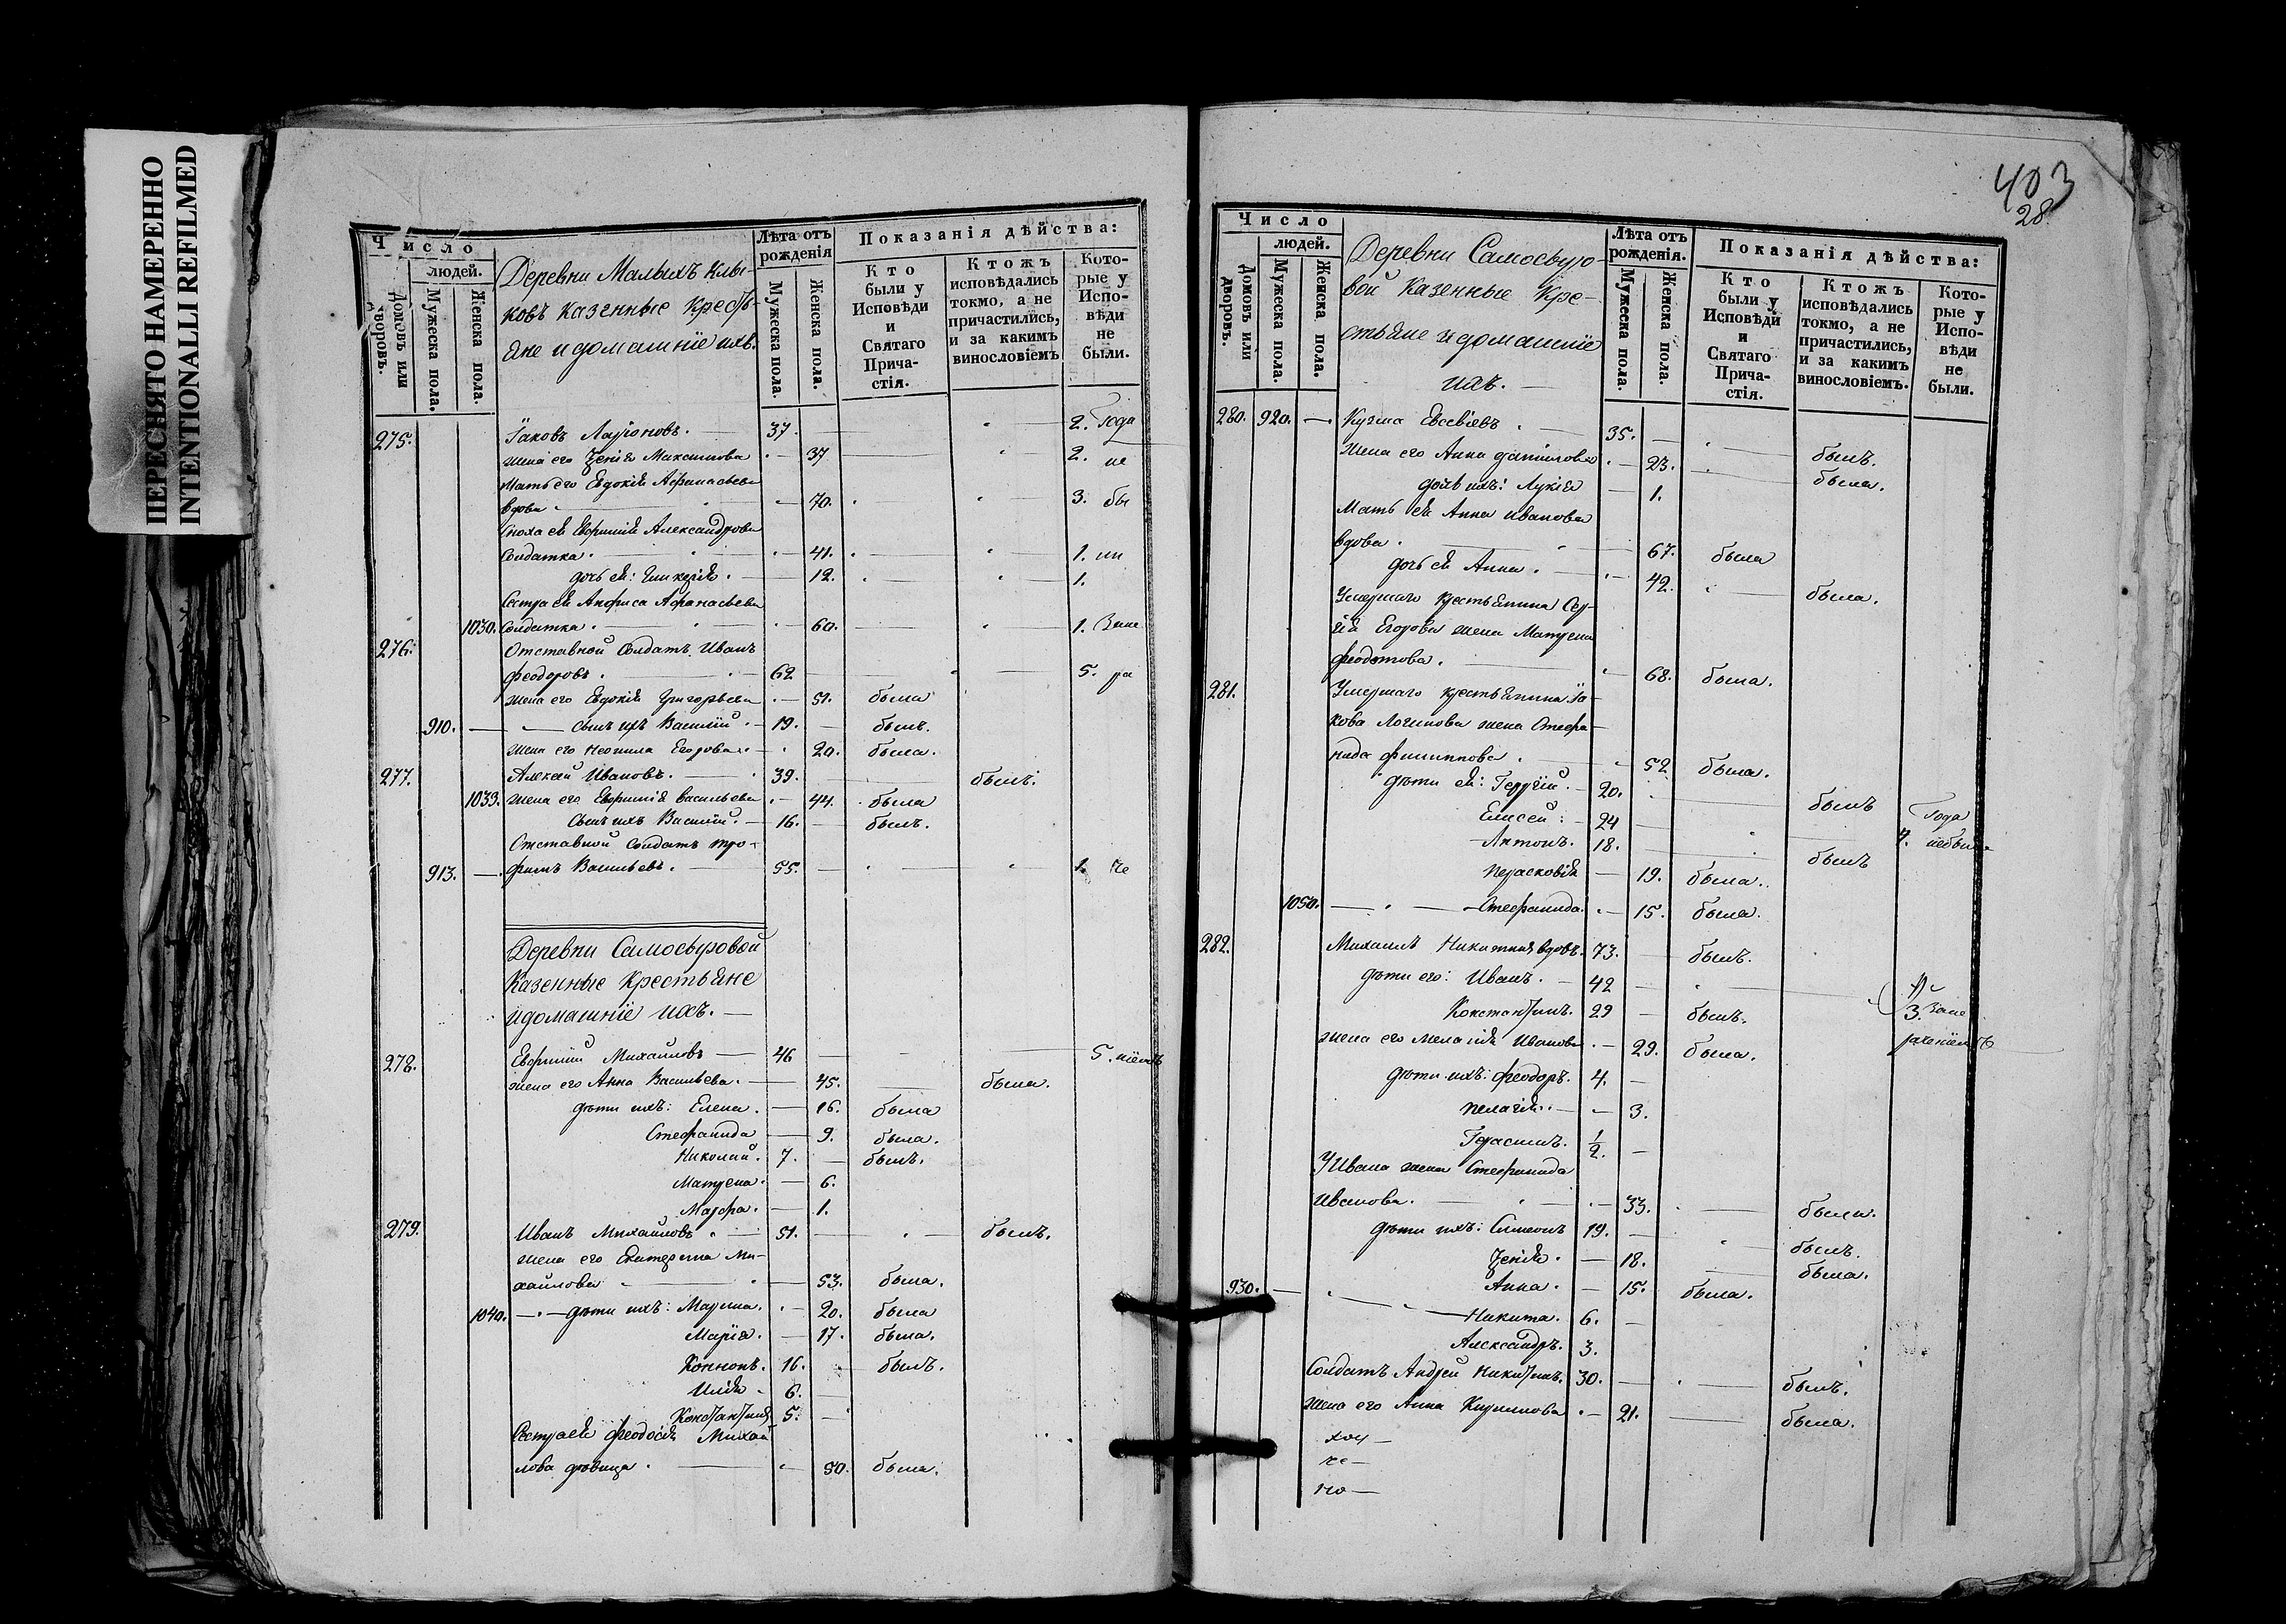 ПЕРЕСНЯТО НАМЕРЕННО
INTENTIONALLI REFILMED
Число
людей.
Домовъ или дворовъ.
Мужеска пола.
Женска пола.
Деревни Малыхъ Клы-
ковъ казенные крестья-
яне и домашніе ихъ.
Лѣта отъ рожденія
Мужеска пола.
Женска пола.
Показанія дѣйства:
Кто были у Исповѣди и Святаго Прича-стія.
Ктожъ исповѣдались токмо, а не причастились, и за какимъ винословіемъ
Кото-рые у Испо-вѣди не были.
275. Іаковъ Ларіоновъ. 37. 2. Года
жена его Ѯенія Максимова 37 2. не
Мать его Евдокія Афанасьева
вдова 70. 3. бы
Сноха ея Евфимія Александрова
Солдатка. 41. 1. ли
дочь ея: Гликерія. 12. 1.
Сестра ея Анфиса Афанасьева
1030. Солдатка. 60. 1. Зане
276. Отставной Солдатъ Иванъ
Феодоровъ. 62 5. ра
жена его Евдокія Григорьева 51. была
910. сынъ ихъ Василій. 19. былъ.
жена его Неонила Егорова 20. была.
277. Алексей Ивановъ. 39. былъ.
1033. жена его Евфимія Васильева 44. была
Сынъ ихъ Василій. 16. былъ.
Отставной Солдатъ Тро-
913. фимъ Васильевъ. 55. 1. че
Деревни Самосыровой
Казенные Крестьяне
и домашніе ихъ.
278. Евфимій Михайловъ 46 5.
жена его Анна Васильева. 45. была.
дѣти ихъ: Елена. 16. была
Стефанида 9. была.
Николай. 7. былъ.
Матрена. 6.
Марфа. 1.
279. Иванъ Михайловъ 51. былъ.
жена его Екатерина Ми-
хайлова 53. была.
1040. дѣти ихъ: Марина. 20. была
Марія. 17. была.
Кононъ. 16. былъ.
Илія. 6.
Константинъ 5.
Сестра ея Феодосія Михай
лова дѣвица. 50. была.
403
28
Число
людей.
Домовъ или дворовъ.
Мужеска пола.
Женска пола.
Деревни Самосыро-
вой Казенные Кре-
стьяне и домашніе
ихъ.
Лѣта отъ рожденія.
Мужеска пола.
Женска пола.
Показанія дѣйства:
Кто были у Исповѣди и Святаго Прича-стія.
Ктожъ исповѣдались токмо, а не причастились, и за какимъ винословіемъ.
Кото-рые у Испо-вѣди не были.
280. 920. Кузма Евсевіевъ 35. былъ.
жена его Анна Даниилова 23. была.
дочь ихъ: Лукія 1.
Мать ея Анна Иванова
вдова. 67. была
дочь ея Анна. 42. была.
Умершаго крестьянина Сер-
гія Егорова жена Матрена
Феодотова. 68. была.
281. Умершаго крестьянина Іа-
кова Логинова жена Стефа-
нида Филиппова. 52 была.
дѣти ея: 20. былъ
Елисей: 24 Года
Антонъ. 18. былъ
Парасковія 19. была.
1050. Стефанида. 15. была.
282. Михаилъ Никитинъ вдовъ. 73. былъ.
дѣти его: Иванъ. 42
Константинъ. 29 былъ. 3. Зане
жена его Меланія Иванова 29. была.
дѣти ихъ: Феодоръ. 4.
Пелагія. 3.
Герасимъ. 1/2.
У Ивана жена Стефанида
Иванова. 33. была.
дѣти ихъ: Симеонъ 19. былъ.
Ѯенія. 18. была.
Анна. 15. была.
930. Никита. 6.
Александръ. 3.
Солдатъ Андрей Никитинъ. 30. былъ.
жена его Анна Кирилова 21. была.